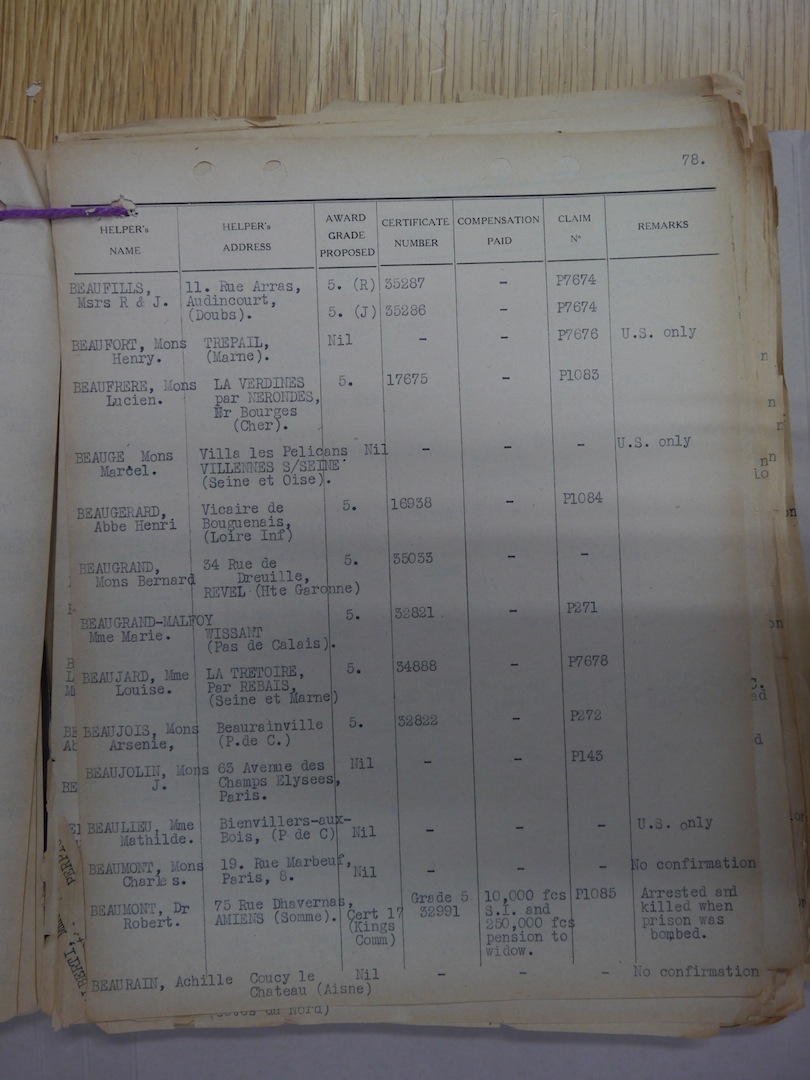 78.
HELPER's NAME | HELPER's ADDRESS | AWARD GRADE PROPOSED | CERTIFICATE NUMBER | COMPENSATION PAID | CLAIM Nº | REMARKS
BEAUFILLS, 11. Rue Arras, 5. (R) 35287 - P7674
Msrs R & J. Audincourt,
(Doubs). 5. (J) 35286 - P7674
BEAUFORT, Mons TREPAIL, Nil - - P7676 U.S. only
Henry. (Marne).
BEAUFRERE, Mons LA VERDINES 5. 17675 - P1083
Lucien. par NERONDES,
Nr Bourges
(Cher).
BEAUGE Mons Villa les Pelicans Nil - - - U.S. only
Marcel. VILLENNES S/SEINE
(Seine et Oise).
BEAUGERARD, Vicaire de 5. 16938 - P1084
Abbe Henri Bouguenais,
(Loire Inf)
BEAUGRAND, 34 Rue de 5. 35033 - -
Mons Bernard Dreuille,
REVEL (Hte Garonne)
BEAUGRAND-MALFOY 5. 32821 - P271
Mme Marie. WISSANT
(Pas de Calais).
BEAUJARD, Mme LA TRETOIRE, 5. 34888 - P7678
Louise. Par REBAIS,
(Seine et Marne)
BEAUJOIS, Mons Beaurainville 5. 32822 - P272
Arsenie, (P.de C.)
BEAUJOLIN, Mons 63 Avenue des Nil - - P143
J. Champs Elysees,
Paris.
BEAULIEU, Mme Bienvillers-aux- - - - U.S. only
Mathilde. Bois, (P de C) Nil
BEAUMONT, Mons 19. Rue Marbeuf, Nil - - - No confirmation
Charles. Paris, 8.
BEAUMONT, Dr 75 Rue Dhavernas, Grade 5 10,000 fcs P1085 Arrested and
Robert. AMIENS (Somme). Cert 17 32991 S.I. and killed when
(Kings 250,000 fcs prison was
Comm) pension to bombed.
widow.
BEAURAIN, Achille Coucy le Nil - - - No confirmation
Chateau (Aisne)